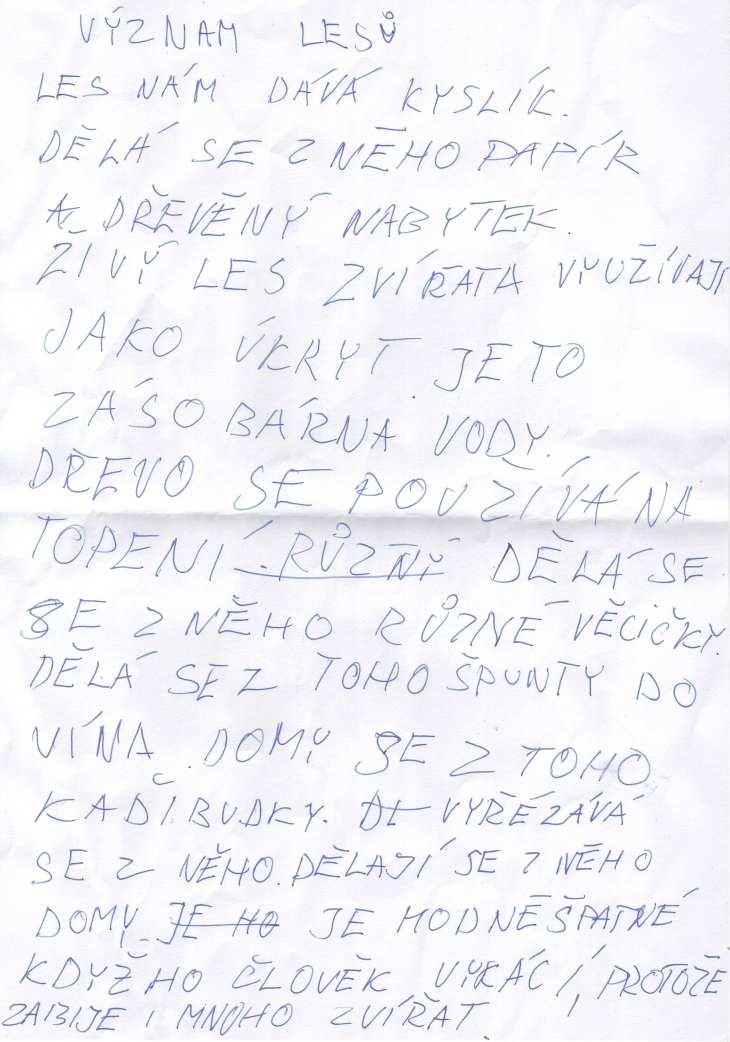 VÝZNAM LESŮ
LES NÁM DÁVÁ KYSLÍK.
DĚLÁ SE Z NĚHO PAPÍR
A DŘEVĚNÝ NABYTEK.
ŽIVÝ LES ZVÍŘATA VYUŽÍVAJÍ
JAKO ÚKRYT. JE TO
ZÁSOBÁRNA VODY.
DŘEVO SE POUŽÍVÁ NA
TOPENÍ. RŮZNÝ DĚLÁ SE
SE Z NĚHO RŮZNÉ VĚCIČKY.
DĚLÁ SE Z TOHO ŠPUNTY DO
VÍNA. DOMY SE Z TOHO
KADIBUDKY. VYŘÉZÁVÁ
SE Z NĚHO. DĚLAJÍ SE Z NĚHO
DOMY. JE HO JE HODNĚ ŠPATNÉ
KDYŽ HO ČLOVĚK VYKÁCÍ, PROTOŽE
ZABIJE I MNOHO ZVÍŘAT.